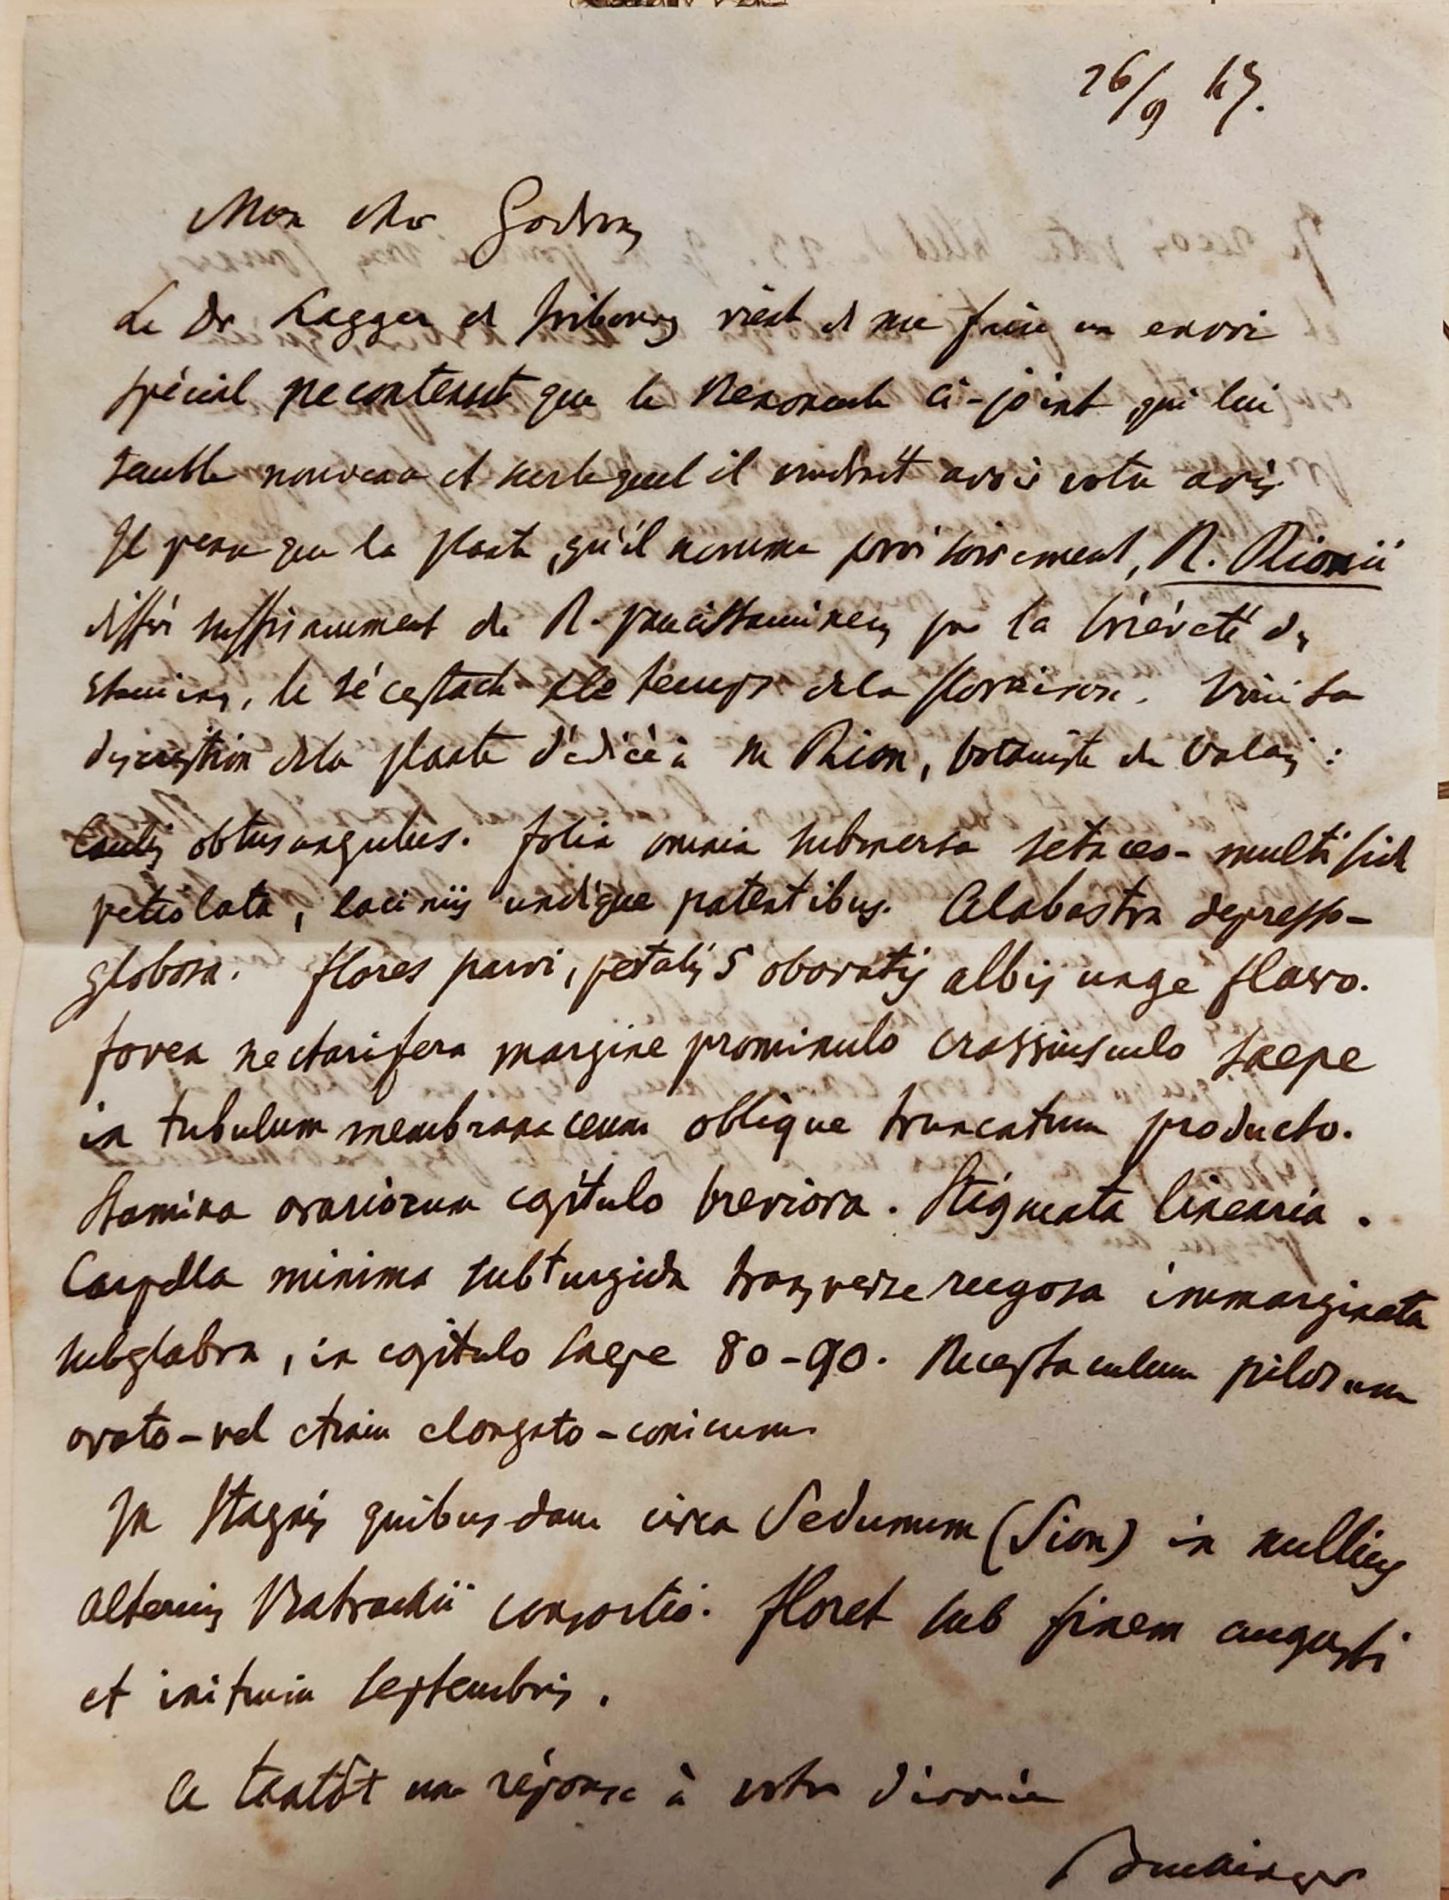 26/9 47.
Mon cher Godron
Le Dr Lagger de Fribourg vient de me faire un envoi
spécial ne contenant que la Renoncule ci-joint qui lui
semble nouveau et sur lequel il voudrait avoir votre avis
Il pense que la plante, qu'il nomme provisoirement, R. Rionii
diffère suffisamment du R. paucistamineus par la brièveté des
étamines, le réceptacle & le temps de la floraison. Voici sa
description de la plante dédiée à M Rion, botaniste du Valais :
Caulis obtusangulus. folia omnia submersa setaceo-multifida
petiolata, laciniis undique patentibus. Alabastra depresso-
globosa. flores parvi, petalis 5 obovatis albis unge flavo.
fovea nectarifera margine prominulo crassiusculo saepe
in tubulum membranaceum oblique truncatum producto.
Stamina ovariorum capitulo breviora. Stigmata linearia.
Carpella minima subturgida transverse rugosa immarginata
subglabra, in capitulo saepe 80-90. Receptaculum pilosum
ovato-vel etiam elongato-conicum
In stagnis quibusdam circa Sedunum (Sion) in nullius
alterius Batrachii consortio. floret sub finem augusti
et initium septembris.
à tantôt une réponse à votre
Buchinger